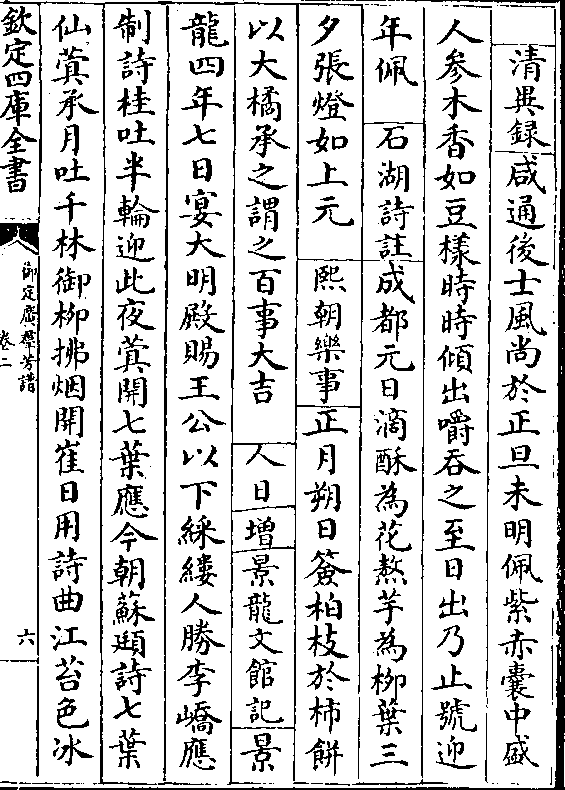 清異録咸通後士風尚於正旦未明佩紫赤囊中盛
人參木香如豆様時時傾出嚼吞之至日出乃止號迎
年佩　石湖詩註成都元日滴酥為花熬芋為栁葉三
夕張燈如上元　熙朝樂事正月朔日簽柏枝於柿餅
以大橘承之謂之百事大吉　人日增景龍文館記景
龍四年七日宴大明殿賜王公以下綵縷人勝李嶠應
制詩桂吐半輪迎此夜蓂開七葉應今朝蘇頲詩七葉
仙蓂承月吐千林御栁拂烟開崔日用詩曲江苔色冰
欽定四庫全書
御定廣羣芳譜
卷二
六